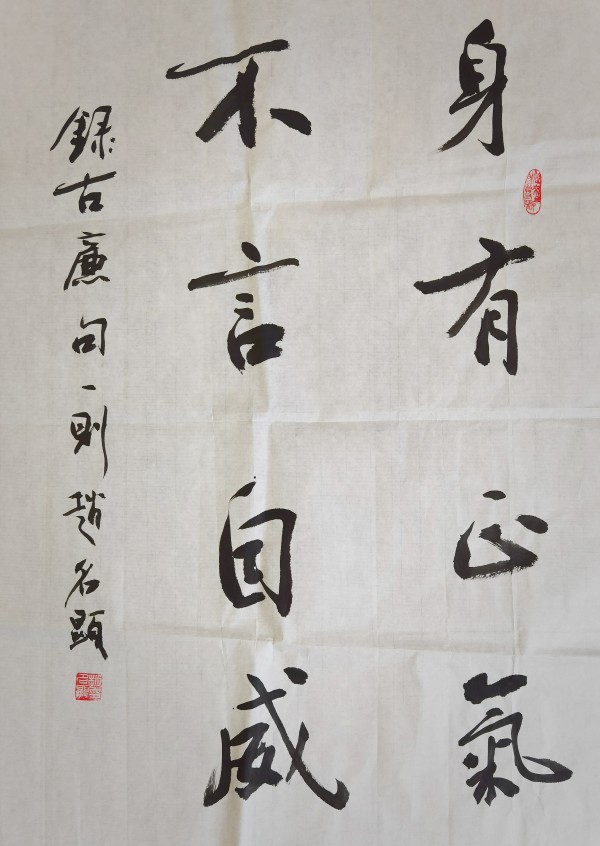 身有正氣
不言自威
錄古廉句一則趙名顕